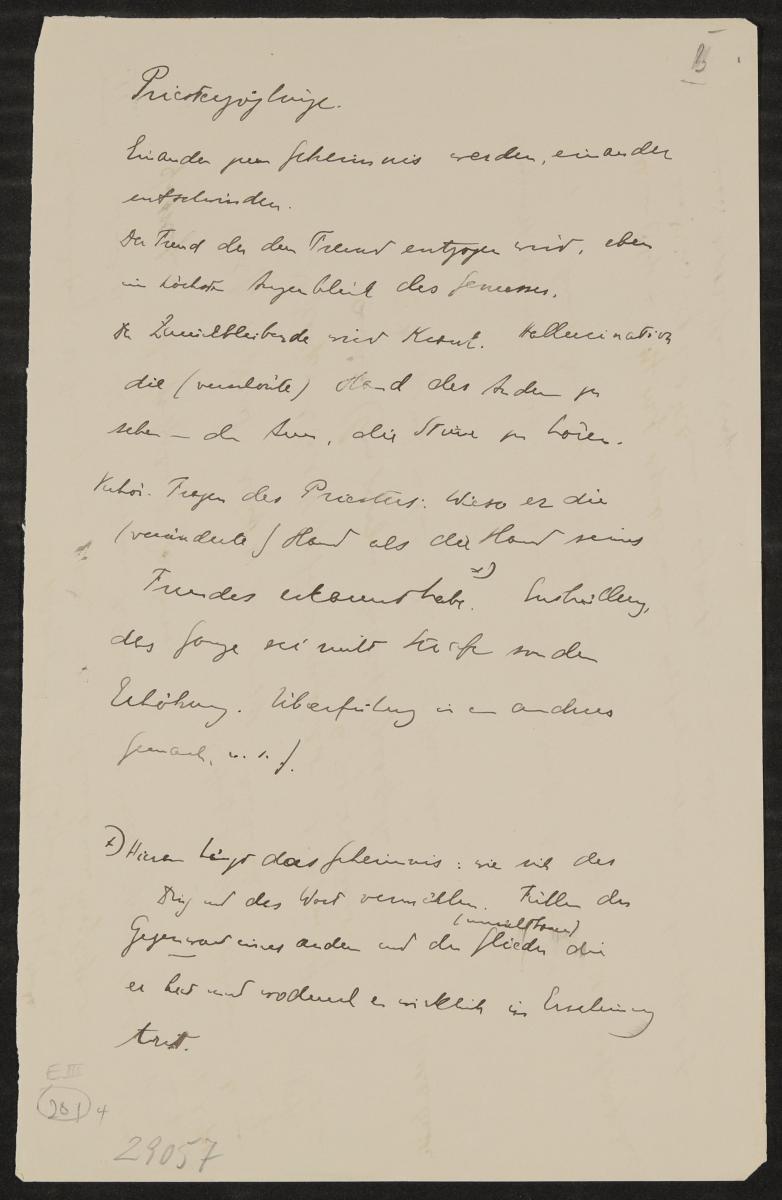 B
Priesterzöglinge.
Einander zum Geheimnis werden, einander
entschwinden.
Der Freund der dem Freund entzogen wird, eben
im höchsten Augenblick des Genusses.
Der Zurückbleibende wird krank. Hallucination
die (verklärte) Hand des Andern zu
sehen – den Arm, die Stimme zu hören.
Verhör. Fragen des Priesters: Wieso er die
(veränderte) Hand als die Hand seines
Freundes erkannt habe. x) Enthüllung,
das Ganze sei nicht Strafe sondern
Erhöhung. Überführung in ein anderes
Gemach, u. s. f.
x) Hieran hängt das Geheimnis: wie sich das
Ding und das Wort vermählen. Fühlen der
(unmittelbaren)
Gegenwart eines andern und der Glieder die
er hat und wodurch er wirklich in Erscheinung
tritt.
E III
201 4
29057